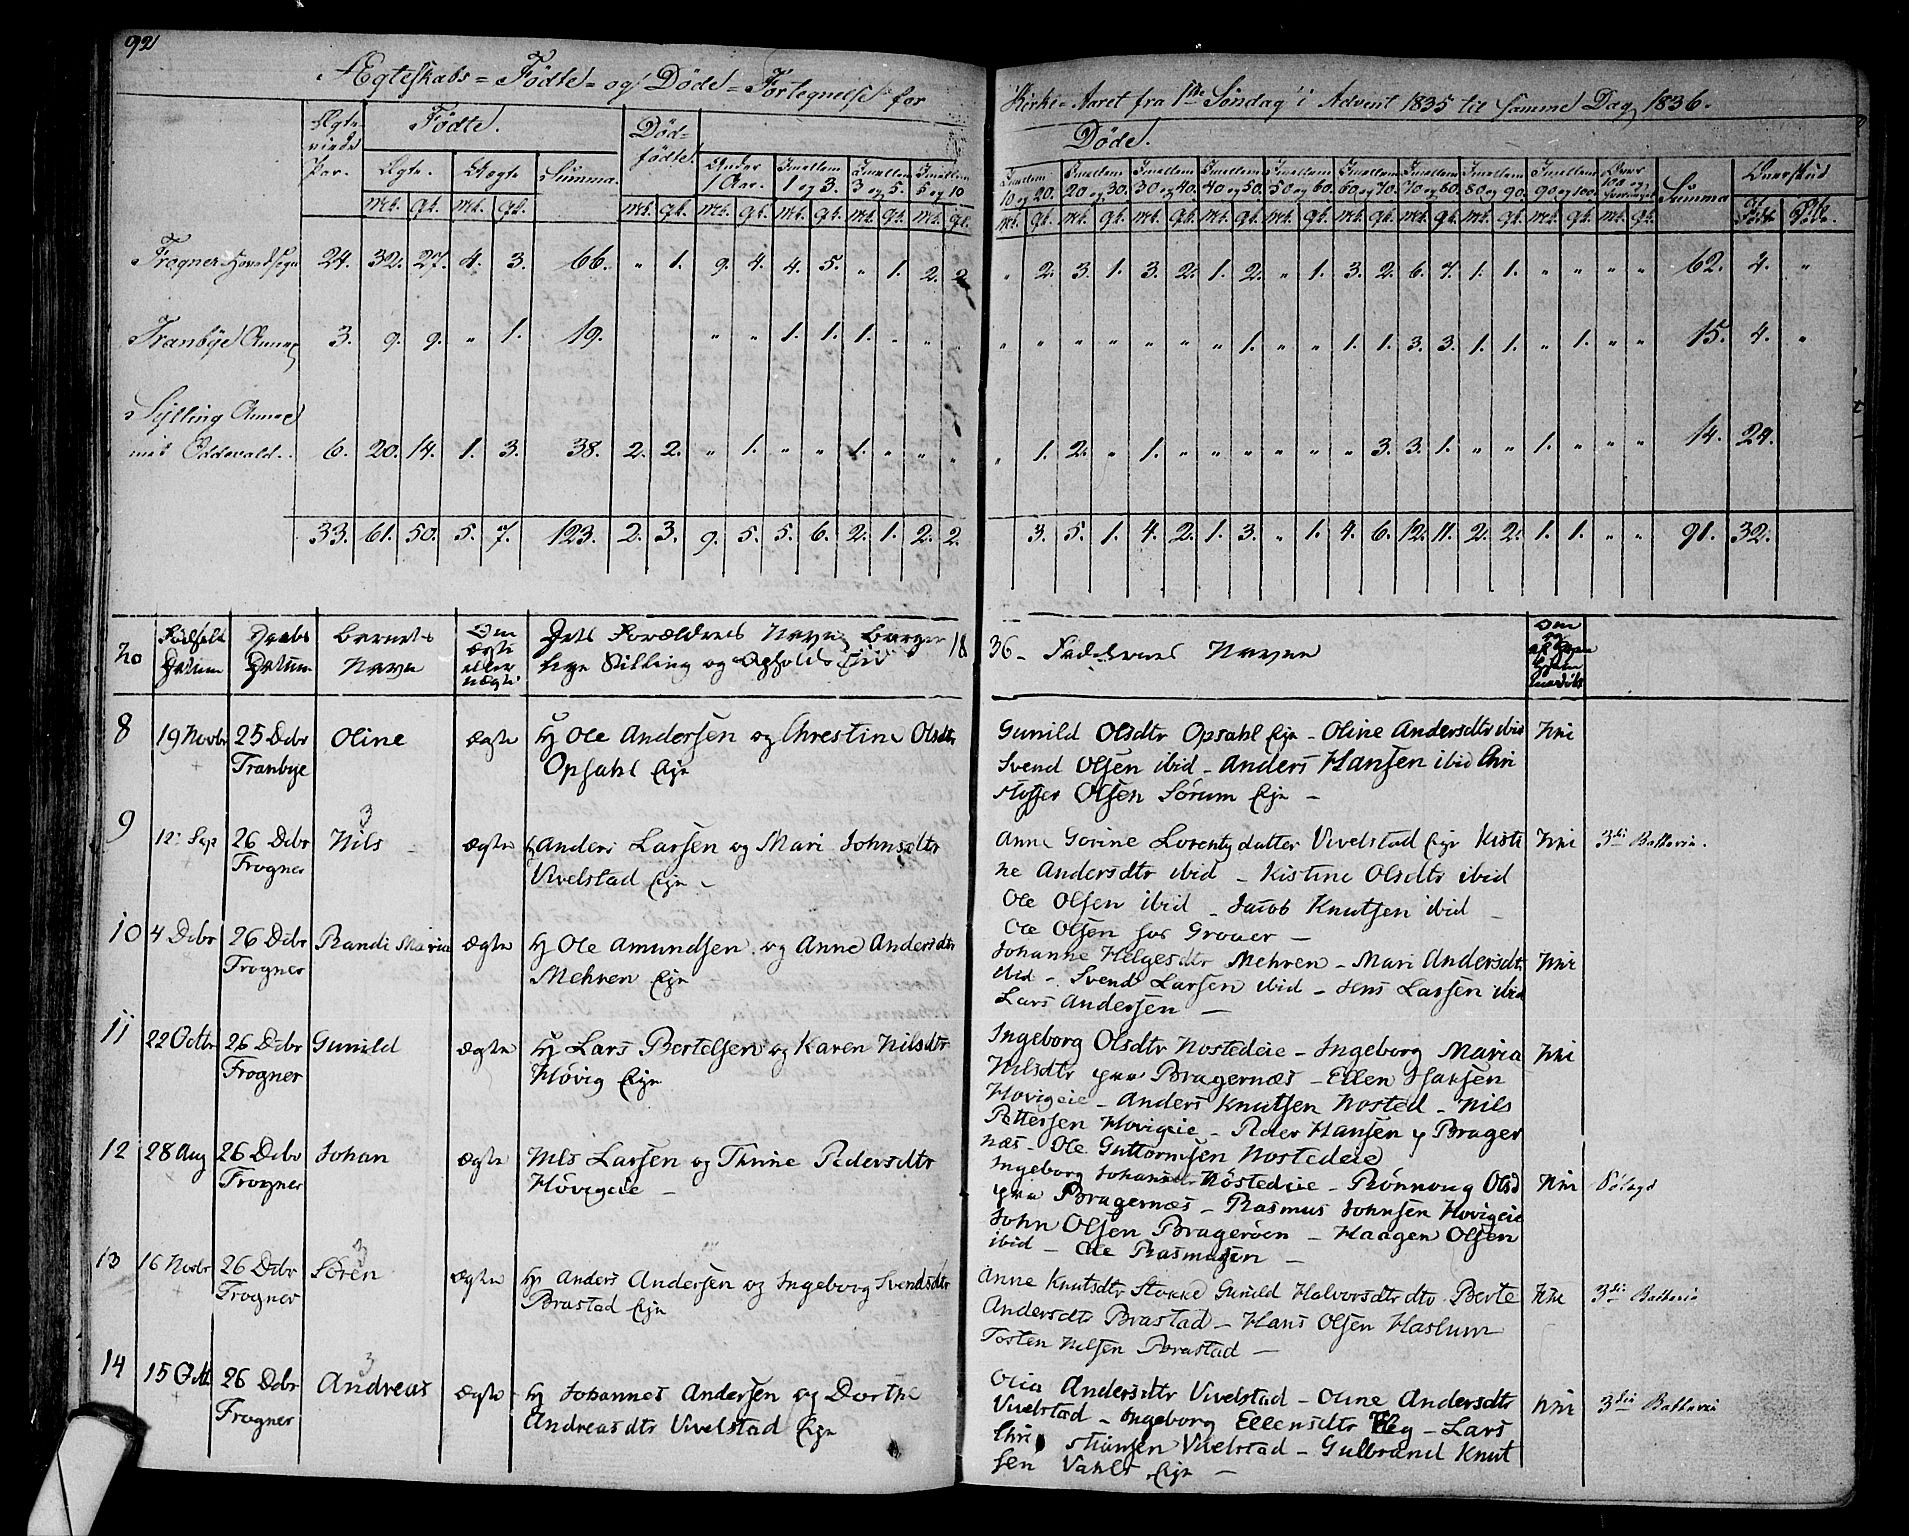 92
Ægteskabs= Fødte= og Døde= Fortegnelse for
Kirke-Aaret fra 1ste Søndag i Advent 1835 til samme Dag 1836.
Ægte-
viede
Par.
Fødte.
Død-
fødte.
Døde.
Ægte.
Uægte
Summa.
Under
1 Aar.
Imellem
1 og 3.
Imellem
3 og 5.
Imellem
5 og 10
Imellem
10 og 20.
Imellem
20 og 30.
Imellem
30 og 40.
Imellem
40 og 50.
Imellem
50 og 60.
Imellem
60 og 70.
Imellem
70 og 80.
Imellem
80 og 90.
Imellem
90 og 100.
Over
100 og
Summa
Overskud
af
Fødte
Døde.
Mk. Qk. Mk. Qk. Mk. Qk. Mk. Qk. Mk. Qk. Mk. Qk. Mk. Qk.
Mk. Qk. Mk. Qk. Mk. Qk. Mk. Qk. Mk. Qk. Mk. Qk. Mk. Qk. Mk. Qk. Mk. Qk. Mk. Qk.
Frogner Hovedsogn 24. 32. 27. 4. 3. 66. " 1. 9. 4. 4. 5. " 1. 2. 2
" 2. 3. 1. 3. 2. 1. 2. " 1. 3. 2. 6. 7. 1. 1. " " " " 62. 4. "
Tranbye Annex 3. 9. 9. " 1. 19. " " 1. 1. 1. " " "
" " " " " " " 1. " " 1. 1. 3. 3. 1. 1. " 1. " " 15. 4. "
Sylling Annex
med Oddevald. 6. 20. 14. 1. 3. 38. 2. 2. " 1. " " 1. " " "
" 1. 2. " 1. " " " " " " 3. 3. 1. " " 1. " " " 14. 24.
33. 61. 50. 5. 7. 123. 2. 3. 9. 5. 5. 6. 2. 1. 2. 2.
3. 5. 1. 4. 2. 1. 3. " 1. 4. 6. 12. 11. 2. 2. 1. 1. " " 91. 32.
No
Fødsels
Datum
Daabs
Datum
Barnets
Navn
Om
Ægte
eller
Uægte
Dets Forældres Navn Borger
lige Stilling og Opholds Sted
18
36 - Faddernes Navne
8 19 Novbr 25 Debr Oline ægte Hj Ole Andersen og Chrestine Olsdtr
Tranbye Opsahl Eje
Gunild Olsdtr Opsahl Eje - Oline Andersdtr ibid
Svend Olsen ibid - Anders Hansen ibid Chri
stoffer Olsen Sørum Eje -
3
9 12 Sep 26 Debr Nils ægte Anders Larsen og Mari Johnsdtr
Frogner Vivelstad Eje -
Anne Govine Lorentzdatter Vivelstad Eje Kisti
ne Andersdtr ibid - Kistine Olsdtr ibid
Ole Olsen ibid - Jacob Knutsen ibid -
Ole Olsen hos Grover -
3die Batterie.
10 4 Debr 26 Debr Randi Maria ægte Hj Ole Amundsen og Anne Andersdtr
Frogner Mehren Eje
Johanne Helgesdtr Mehren - Mari Andersdtr
ibid - Svend Larsen ibid - Jens Larsen ibid
Lars Andersen -
11 22 Octbr 26 Debr Gunild ægte Hj Lars Bertelsen og Karen Nilsdtr
Frogner Høvig Eje
Ingeborg Olsdtr Nostedeie - Ingeborg Maria
Nilsdtr paa Bragernæs - Ellen Hansen
Hovigeie - Anders Knutsen Nosted - Nils
Pettersen Hovigeie - Peder Hansen p Brager
næs - Ole Guttormsen Nostedeie
12 28 Aug 26 Debr Johan ægte Nils Larsen og Thrine Pedersdtr
Frogner Høvigeie -
Ingeborg Nöstedeie - Rønnoug Olsd
paa Bragernæs - Rasmus Johnsen Hovigeie
John Olsen Bragerøen - Haagen Olsen
ibid - Ole Rasmussen -
3
13 16 Novbr 26 Debr Sören ægte Hj Anders Andersen og Ingeborg Svendsdtr
Frogner Brastad Eje
Anne Knutsdtr Stokke Gunild Halvorsdtr dto Berte
Andersdtr Brastad - Hans Olsen Haslum
Tosten Nilsen Brastad -
3die Batterie
3
14 15 Octb 26 Debr Andreas ægte Hj Johannes Andersen og Dorthe
Frogner Andreasdtr Vivelstad Eje
Olia Andersdtr Vivelstad - Oline Andersdtr
Vivelstad - Ingeborg Ellensdtr Eeg - Lars
Chri stiansen Vivelstad - Gulbrand Knut
sen Eje -
3die Batterie